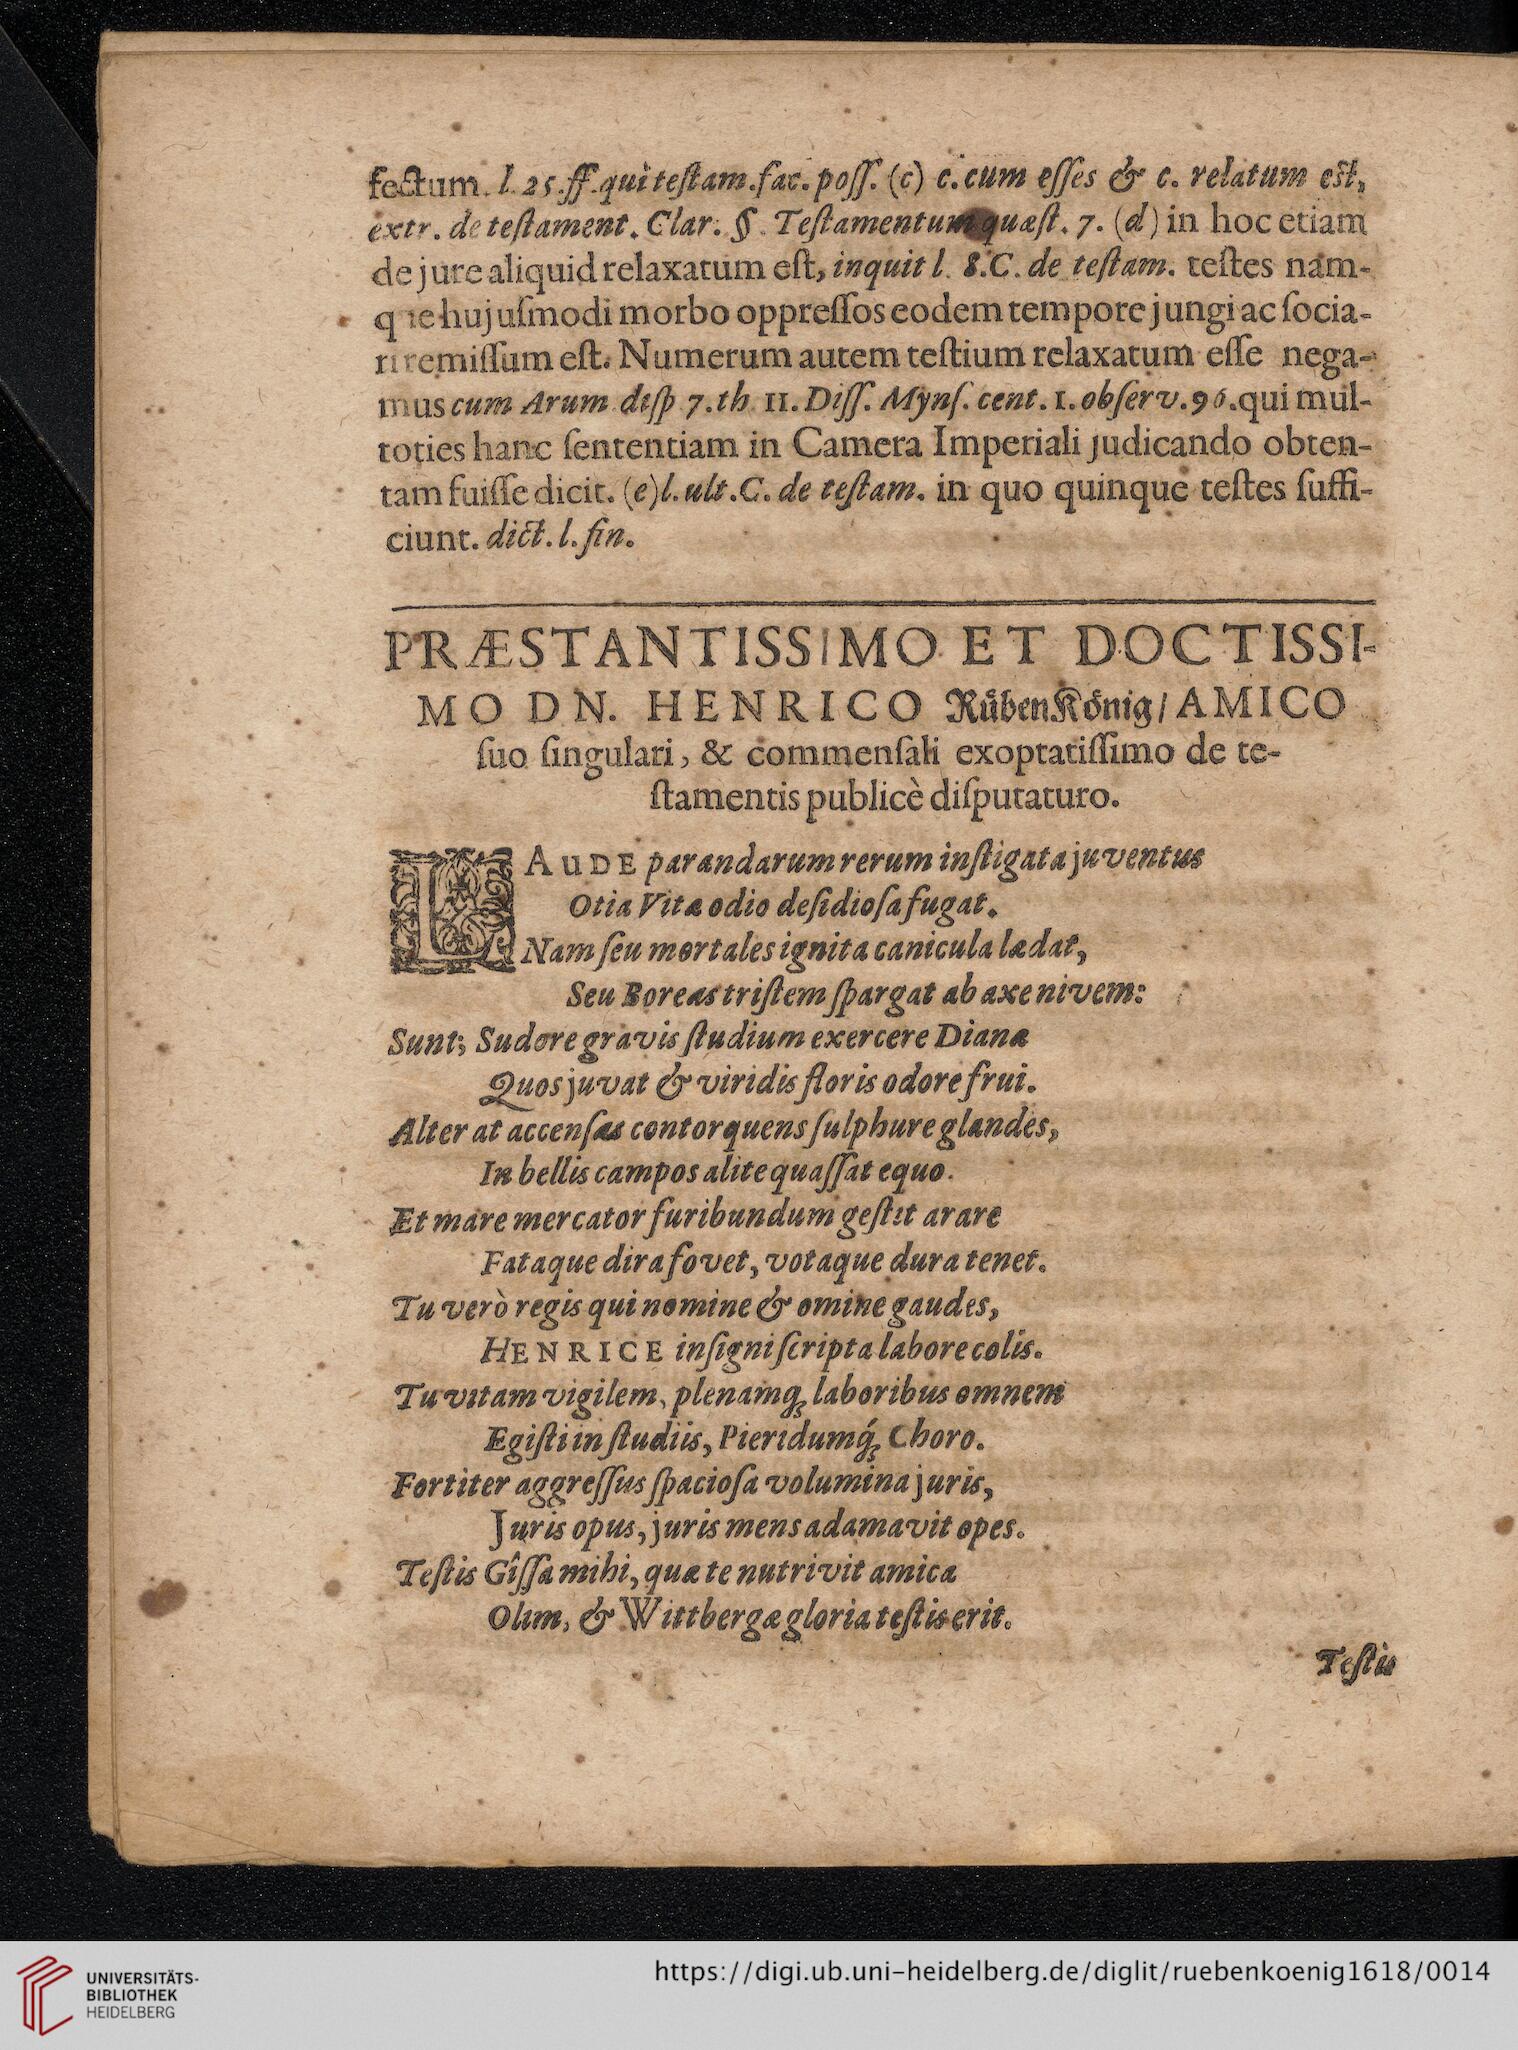 fectum. l. 25. ff. qui testam. fac. poss. (c) c. cum esses & c. relatum est,
extr. de testament. Clar. §. Testamentum quæst. 7. (d) in hoc etiam
de jure aliquid relaxatum est, inquit l. 8. C. de testam. testes nam-
que hujusmodi morbo oppressos eodem tempore jungi ac socia-
ri remissum est. Numerum autem testium relaxatum esse nega-
mus cum Arum disp 7. th 11. Diss. Myns. cent. 1. observ. 96. qui mul-
toties hanc sententiam in Camera Imperiali judicando obten-
tam fuisse dicit. (e) l. ult. C. de testam. in quo quinque testes suffi-
ciunt. dict. l. fin.
PRÆSTANTISSIMO ET DOCTISSI-
MO DN. HENRICO Rübenkönig/ AMICO
suo singulari, & commensali exoptatissimo de te-
stamentis publicè disputaturo.
LAUDE parandarum rerum instigata juventus
Otia Vitæ odio desidiosa fugat.
Nam seu mortales ignita canicula lædat,
Seu Boreas tristem spargat ab axe nivem:
Sunt; Sudore gravis studium exercere Dianæ
Quos juvat & viridis floris odore frui.
Alter at accensas contorquens sulphure glandes,
In bellis campos alite quassat equo.
Et mare mercator furibundum gestit arare
Fataque dira fovet, votaque dura tenet.
Tu verò regis qui nomine & omine gaudes,
HENRICE insigni scripta labore colis.
Tu vitam vigilem, plenamq; laboribus omnem
Egisti in studiis, Pieridumq́; Choro.
Fortiter aggressus spaciosa volumina juris,
Juris opus, juris mens adamavit opes.
Testis Gîssa mihi, quæ te nutrivit amica
Olim, & Wittbergæ gloria testis erit.
Testis
UNIVERSITÄTS-
BIBLIOTHEK
HEIDELBERG
https://digi.ub.uni-heidelberg.de/diglit/ruebenkoenig1618/0014